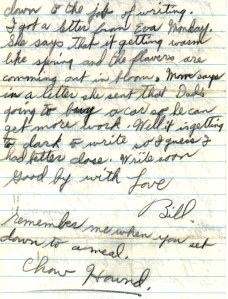 down to the job of writing.
I got a letter from Eva Monday.
She says that it getting warm
like spring and the flowers are
comming out in bloom. Mom says
in a letter she sent that Dad's
going to buy a car so he can
get more work. Well it is getting
to dark to write so I guess I
had better close. Write soon
Good by with love
Bill.
remember me when you set
down to a meal.
Chow Hound.